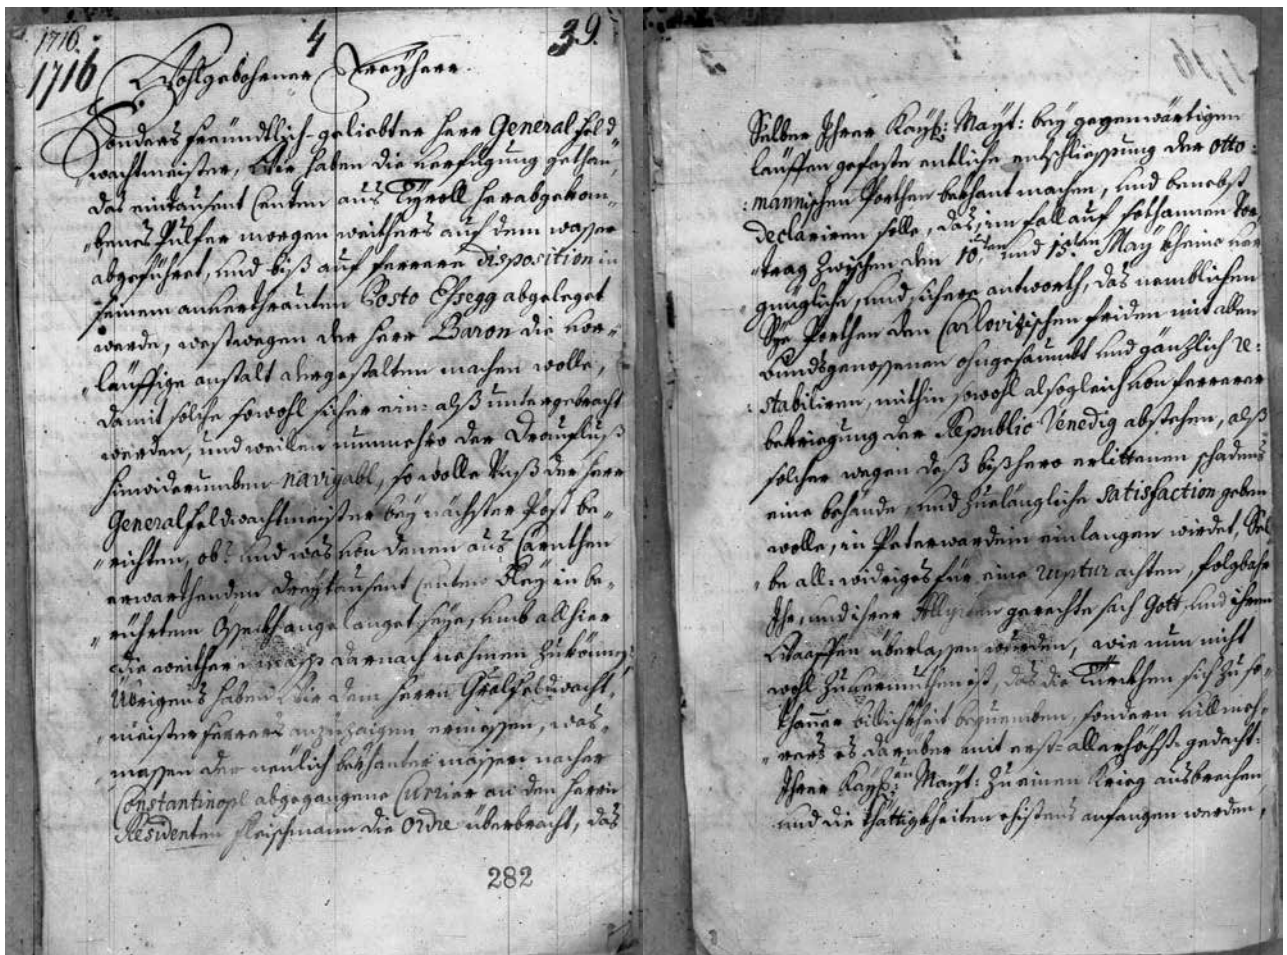 1716.
1716
4
39.
Wohlgebohrner Freyherr.
Sonders freündtlich-geliebter Herr General feld„
„wachtmeister, Wir haben die verfügung gethan,
das eintausent Centen aus Tÿroll herabgekom„
„benes Pulfer morgen weithers auf dem wasser
abgeführet, und biß auf fernere disposition in
seinem anverthrauten Posto Essegg abgeleget
werde, westwegen der Herr Baron die vor„
„läuffige anstalt dergestalten machen wolle,
damit solche sowohl sicher ein- alß untergebracht
werden, und weillen nunmehro der Draufluß
hinwiderumben navigabl, so wolle Unß der Herr
General feldtwachtmeister beÿ nächster Post be„
„richten, ob: und was von denen aus Cärnthen
erwarthenden dreÿtausent Centen Bleÿ in be„
„rührtem Össeckh angelanget seÿe, umb allhier
die weithere darnach nehmen zu können;
Übrigens haben Wir dem Herrn Gralfeldtwacht„
„meister ferners anzuzaigen ermessen, was„
„massen der neülich bekhanter massen nacher
Constantinopl abgegangene Currier an den Herrn
Residenten Fleischmann die Ordre überbracht, das
282
Selber Ihrer Kaÿß: Maÿt: beÿ gegenwärtigen
läuffen gefaste entliche entschliessung der Otto:
:mannischen Porthen bekhant machen, und benebst
declariren solle, das, im fall auf sothannen Vor„
„trag zwischen den 10ten und 15ten Maÿ kheine ver„
„gnügliche, und sichere antworth, das nemblichen
Sÿe Porthen den Carlovizischen friden mit allen
bundtsgenossenen ohngesäumbt und gänzlich re:
:stabiliren, mithin sowohl alsogleich von fernerer
bekriegung der Republic Venedig abstehen, alß
solcher wegen deß bißhero erlittenen schadens
eine behände, und zuelängliche Satisfaction geben
wolle, in Peterwardein einlangen wirdet, Sel„
„be all-widriges für eine ruptur achten, folgbahr
Ihr, und ihrer Allyrten gerechte sach Gott und ihren
Waaffen überlassen wurden, wie nun nicht
wohl zu vermuthen ist, das die Türckhen sich zu so„
„thanner billichkheit bequemben, sondern villmeh„
„rers es darüber mit erst-allerhöchst gedacht:
Ihrer Kaÿß:en Maÿt: zu einen Krieg ausbrechen,
und die thättigkheiten ehistens anfangen werden,